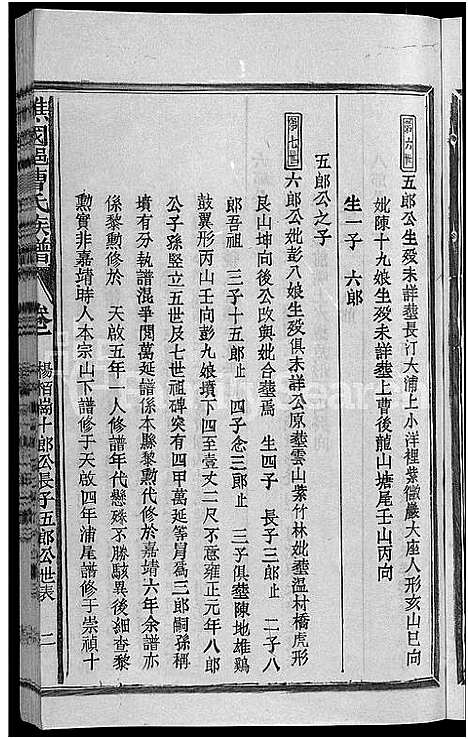 第六世
五郎公生殁未詳葬長汀大浦上小洋裡紫微巖大座人形亥山巳向
妣陳十九娘生殁未詳葬上曹後龍山塘尾壬山丙向
生一子 六郎
五郎公之子
第七世
六郎公妣彭八娘生殁俱未詳公原葬雲山紫竹林妣葬温村橋虎形
艮山坤向後公改與妣合葬焉 生四子 長子三郎止 二子八
郎吾祖 三子十五郎止 四子念三郎止 三子俱葬陳地雄鷄
鼓翼形丙山壬向彭九娘墳下四至壹丈二尺不意雍正元年八郎
公子孫竪立五世及七世祖碑突有四甲萬延等冐爲三郎嗣孫稱
墳有分執譜混爭閲萬延譜係本縣黎勲代修於嘉靖六年余譜亦
係黎勲修於 天啟五年一人修譜年代懸殊不勝駭異後細查黎
勲實非嘉靖時人本宗山下譜修于天啟四年浦尾譜修于崇禎十
譙國邑曹氏族譜
卷一
楊梢崗十郎公長子五郎公世表
二